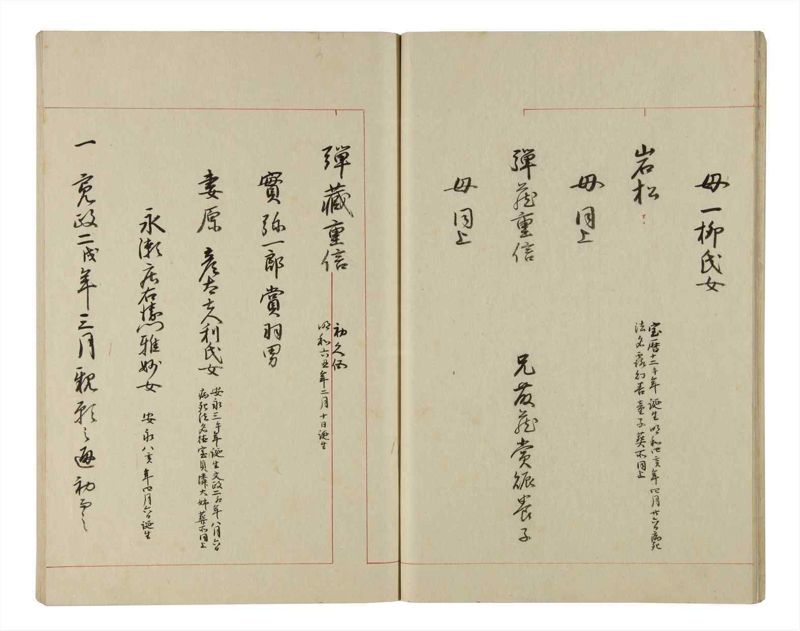 母一柳氏女
岩松
宝暦十二午年誕生明和四亥年四月廿六日病死
法名露幻善童子葬所同上
母同上
弾蔵重信
兄蔵賞養子
母同上
弾藏重信
初久
明和六丑年二月十日誕生
實弥一郎賞羽男
妻原 利氏女
安永三午年誕生文政二卯年八月六日
病死法名 大姉葬所同上
永瀬 雅妙女
安永八亥年四月六日誕生
一寛政二戌年三月親願之通初而